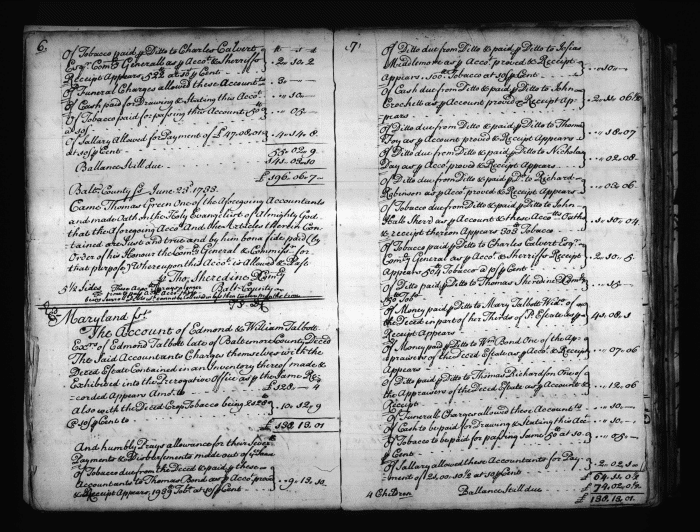 6.
Of Tobacco paid p Ditto to Charles Calvert
Esqr. Comy. Generall as p Accot. & Sheriffs
Receipt Appears 522 at 10 p Cent 2.10.2
Of Funerall Charges allowed these Accountts. 2.
Of Cash paid for Drawing & Stating this Accot. 10.
Of Tobacco paid for passing this Account 50 05.
at 10
Of Sallary Allowed for Payment of £47.08.01 4.14.8.
at 10 p Cent
55.02.9
Ballance Still due 141.03.10
£196.06.7
Balt. County Ss. June 23d. 1733.
Came Thomas Green One of the aforegoing Accountants
and made Oath on the Holy Evangelists of Almighty God
that the aforegoing Accot. And the Articles therein Con-
tained are Just and true and by him bona fide paid (by
Order of his Honour the Comy. Generall & Commissr. for
that purpose) Whereupon the Accot. is Allowed & Past.
p Tho. Sheredine D Comy.
5 1/4 Sides Balt. County
Maryland Sst.
The Account of Edmond & William Talbott
Exrs. of Edmond Talbott late of Baltemore County Deced
The Said Accountants Charges themselves with the
Deced Estate Contained in an Inventory thereof made &
Exhibited into the Prerogative Office as p the Same Re-
corded Appears Amt. to £128.4
Also with the Deced Crop Tobacco being 2128 10.12.9
@ 10 p Cent to
£138.13.01
And humbly Prays allowance for their Several
Payments & Disbursements made out of Same
Of Tobacco due from the Deced & paid p these
Accountants to Thomas Bond as p Accot. prov'd
& Receipt Appears 1939 Tob. at 10 p Cent 9.13.10.
7.
Of Ditto due from Ditto & paid p Ditto to Josias
Middlemore as p Accot. proved & Receipt
Appears 100 Tobacco at 10 p Cent 10.
Of Cash due from Ditto & paid p Ditto to John
Crockett as p Account proved & Receipt Ap-
pears
Of Ditto due from Ditto & paid p Ditto to Thomas
as p Account proved & Receipt Appears 18.07
Of Ditto due from Ditto & paid p Ditto to Nicholas
Day as p Accot. proved & Receipt Appears 02.08.
Of Ditto due from Ditto & paid p Do. to Richard
Robinson as p Accot. proved & Receipt Appears 03.06.
Of Tobacco due from Ditto & paid p Ditto to John
Hall Sherd as p Account & these Accots. Oaths
& receipt thereon Appears 303 Tobacco 1.10.04.
Of Tobacco paid p Ditto to Charles Calvert Esqr.
Comy. Generall as p Accot. & Sheriffs Receipt
Appears 504 Tobacco at 10 p Cent 2.10.5
Of Tobacco paid p Ditto to Thomas Sheredine D Comy. 15.
150 Tob.
Of Money paid p Ditto to Mary Talbott Wid. of
the Deced in part of her Thirds of Ps. Estate as p
Receipt Appears
Of Money paid p Ditto to Wm. Bond One of the Ap-
praisers of the Deced Estate as p Accot. & Receipt 07.06
Appears
Of Ditto paid p Ditto to Thomas Richardson One of
the Appraisers of the Deced Estate as p Account & 12.06
Receipt
Of Funerall Charges allowed these Accountts. 10.
Of Cash to be paid for Drawing & Stating this Acct. 10.
Of Tobacco to be paid for passing Same 50 at 10 05.
p Cent
Of Sallary allowed these Accountants for Pay-
ment of £21.00.10 1/2 at 10 p Cent 2.02.1
£64.11.0 1/2
4 Children Ballance Still due £74.02.0 1/2
£138.13.01.